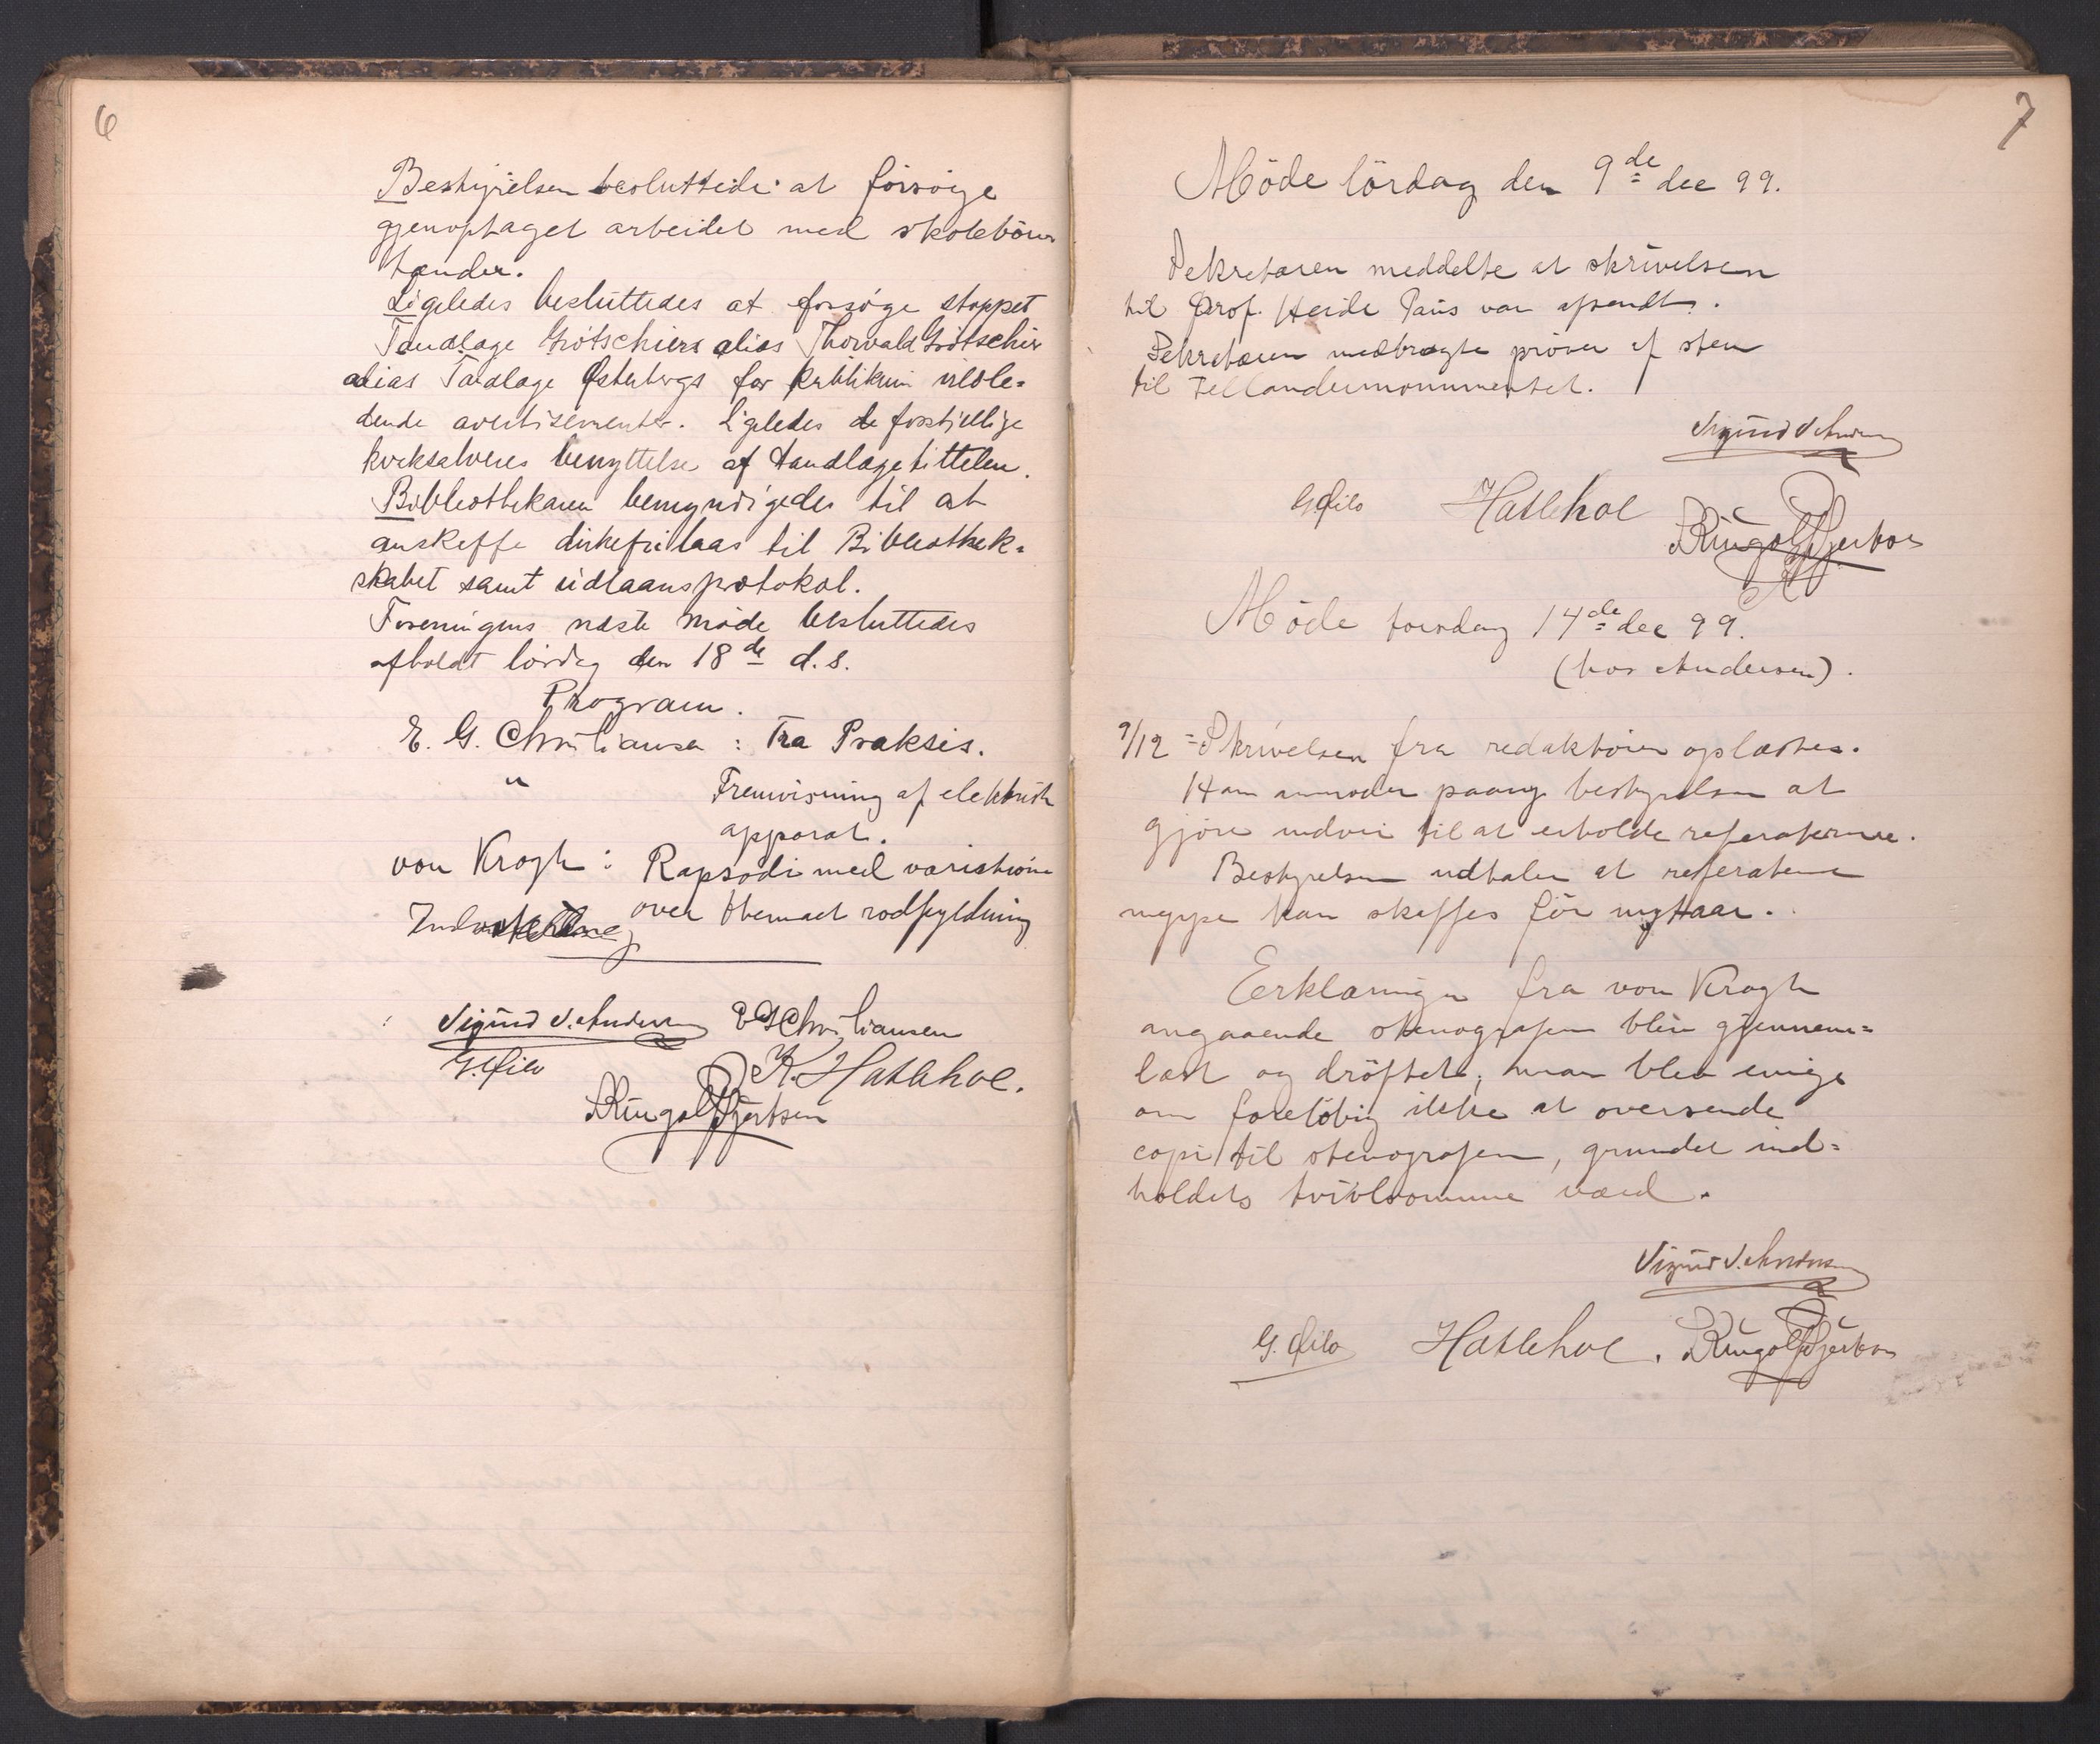 6
Bestyrelsen besluttede at forsöge
gjenoptaget arbeidet med skolebörns
tænder.
Ligeledes besluttedes at forsöge stoppet
Tandlæge Grötschiers alias Thorvald Grötschier
alias Tandlæge Østerbergs for publikum vildle=
dende avertisementer. Ligeledes de forskjellige
kvaksalveres benyttelse af tandlægetittelen.
Bibliothekaren bemyndigedes til at
anskaffe dirkefri laas til Bibliothek=
skabet samt udlaansprotokol.
Foreningens næste möde besluttedes
afholdt lördag den 18de d.s.
Program.
E. G. Christiansen: Fra Praksis.
" Fremvisning af elektrisk
apparat.
von Krogh: Rapsodi med variationer
over themaet rodfyldning
Sigurd S. Andersen E G Christiansen
G. Øilo
K. Hatlehol.
Ringolf Gjertsen
7
Möde lördag den 9de dec 99.
Sekretæren meddelte at skrivelsen
til Prof. Heide Paris var afsendt.
Sekretæren medbragte pröver af sten
til Fellandermonumentet.
Sigurd S Andersen
G Øilo Hatlehol
Ringolf Gjertsen
Möde torsdag 14de dec 99.
(hos Andersen).
9/12 = Skrivelsen fra redaktören oplæstes.
Han anmoder paany bestyrelsen at
gjöre sit til at erholde referaterne.
Bestyrelsen udtaler at referaterne
neppe kan skaffes för nyttaar.
Eerklæringen fra von Krogh
angaaende stenografen blev gjennem=
læst og dröftet; man blev enige
om forelöbig ikke at oversende
copi til stenografen, grundet ind=
holdets tvivlsomme værd.
Sigurd S. Andersen
G. Øilo Hatlehol. Ringolf Gjertsen